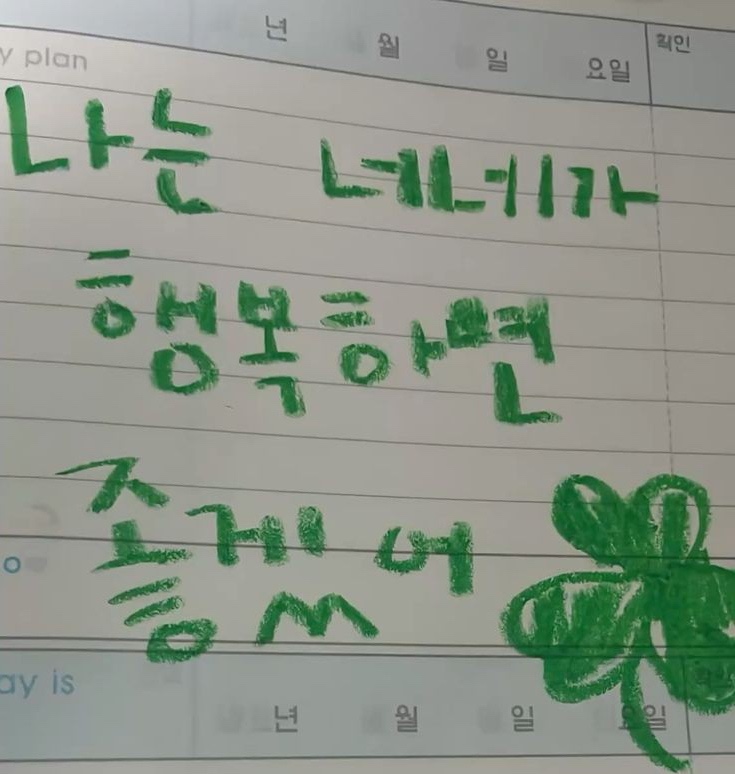 년 월 일 요일 확인
y plan
나는 네네가
행복하면
좋겠어
o
ay is
년 월 일 요일